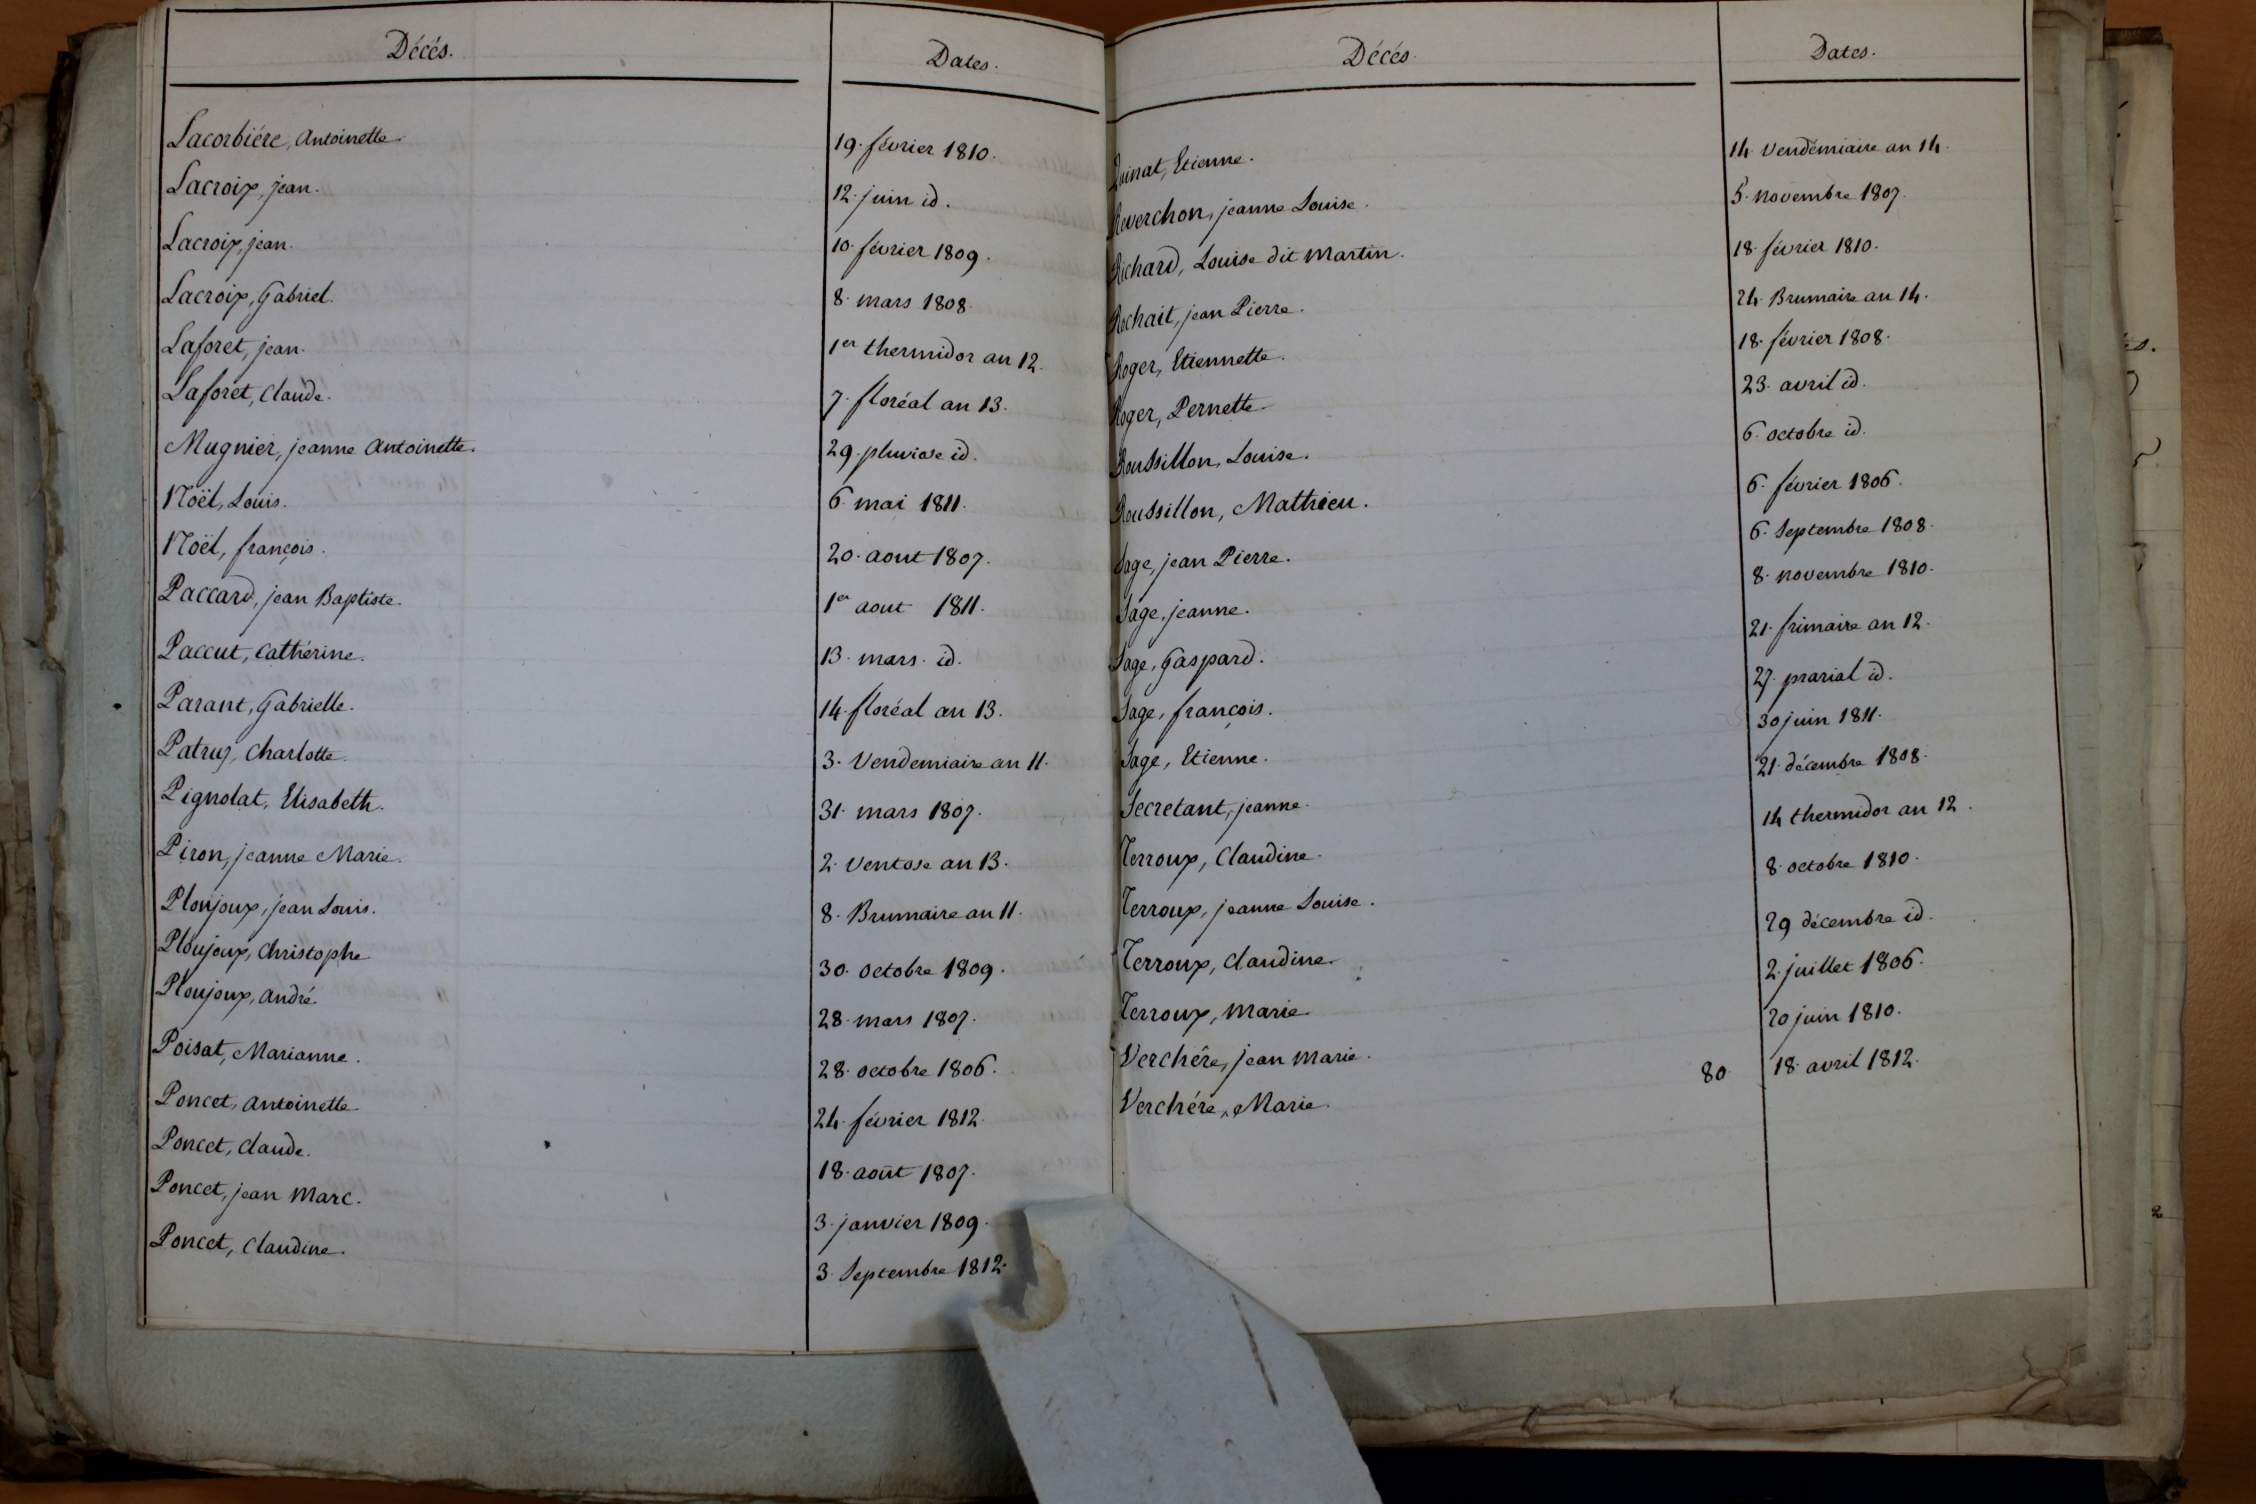 Décés. Dates.
Lacorbiére, Antoinette. 19. février 1810.
Lacroix, jean. 12. juin id.
Lacroix, jean. 10. février 1809.
Lacroix, Gabriel. 8. mars 1808.
Laforet, jean. 1er thermidor an 12.
Laforet, Claude. 7. floréal an 13.
Mugnier, jeanne Antoinette. 29. pluviose id.
Noël, Louis. 6. mai 1811.
Noël, françois. 20. aout 1807.
Paccard, jean Baptiste. 1er aout 1811.
Paccut, Cathérine. 13. mars. id.
Parant, Gabrielle. 14. floréal an 13.
Patruz, Charlotte. 3. Vendemiaire an 11.
Pignolat, Elisabeth. 31. mars 1807.
Piron, jeanne Marie. 2. Ventose an 13.
Ploujoux, jean Louis. 8. Brumaire an 11.
Ploujoux, Christophe 30. octobre 1809.
Ploujoux, André. 28. mars 1807.
Poisat, Marianne. 28. octobre 1806.
Poncet, Antoinette. 24. février 1812.
Poncet, Claude. 18. août 1807.
Poncet, jean Marc. 3. janvier 1809.
Poncet, Claudine. 3. Septembre 1812.
Décés. Dates.
Quinat, Etienne. 14. Vendémiaire an 14.
Reverchon, jeanne Louise. 5. novembre 1807.
Richard, Louise dit Martin. 18. février 1810.
Rochait, jean Pierre. 24. Brumaire an 14.
Roger, Etiennette. 18. février 1808.
Roger, Pernette. 23. avril id.
Roussillon, Louise. 6. octobre id.
Roussillon, Mathieu. 6. février 1806.
Sage, jean Pierre. 6. Septembre 1808.
Sage, jeanne. 8. novembre 1810.
Sage, Gaspard. 21. frimaire an 12.
Sage, françois. 27. prarial id.
Sage, Etienne. 30 juin 1811.
Secretant, jeanne. 21. décembre 1808.
Terroux, Claudine. 14 thermidor an 12.
Terroux, jeanne Louise. 8. octobre 1810.
Terroux, Claudine. 29 décembre id.
Terroux, Marie 2. juillet 1806.
Verchére, jean Marie. 20 juin 1810.
Verchére, Marie. 80 18. avril 1812.